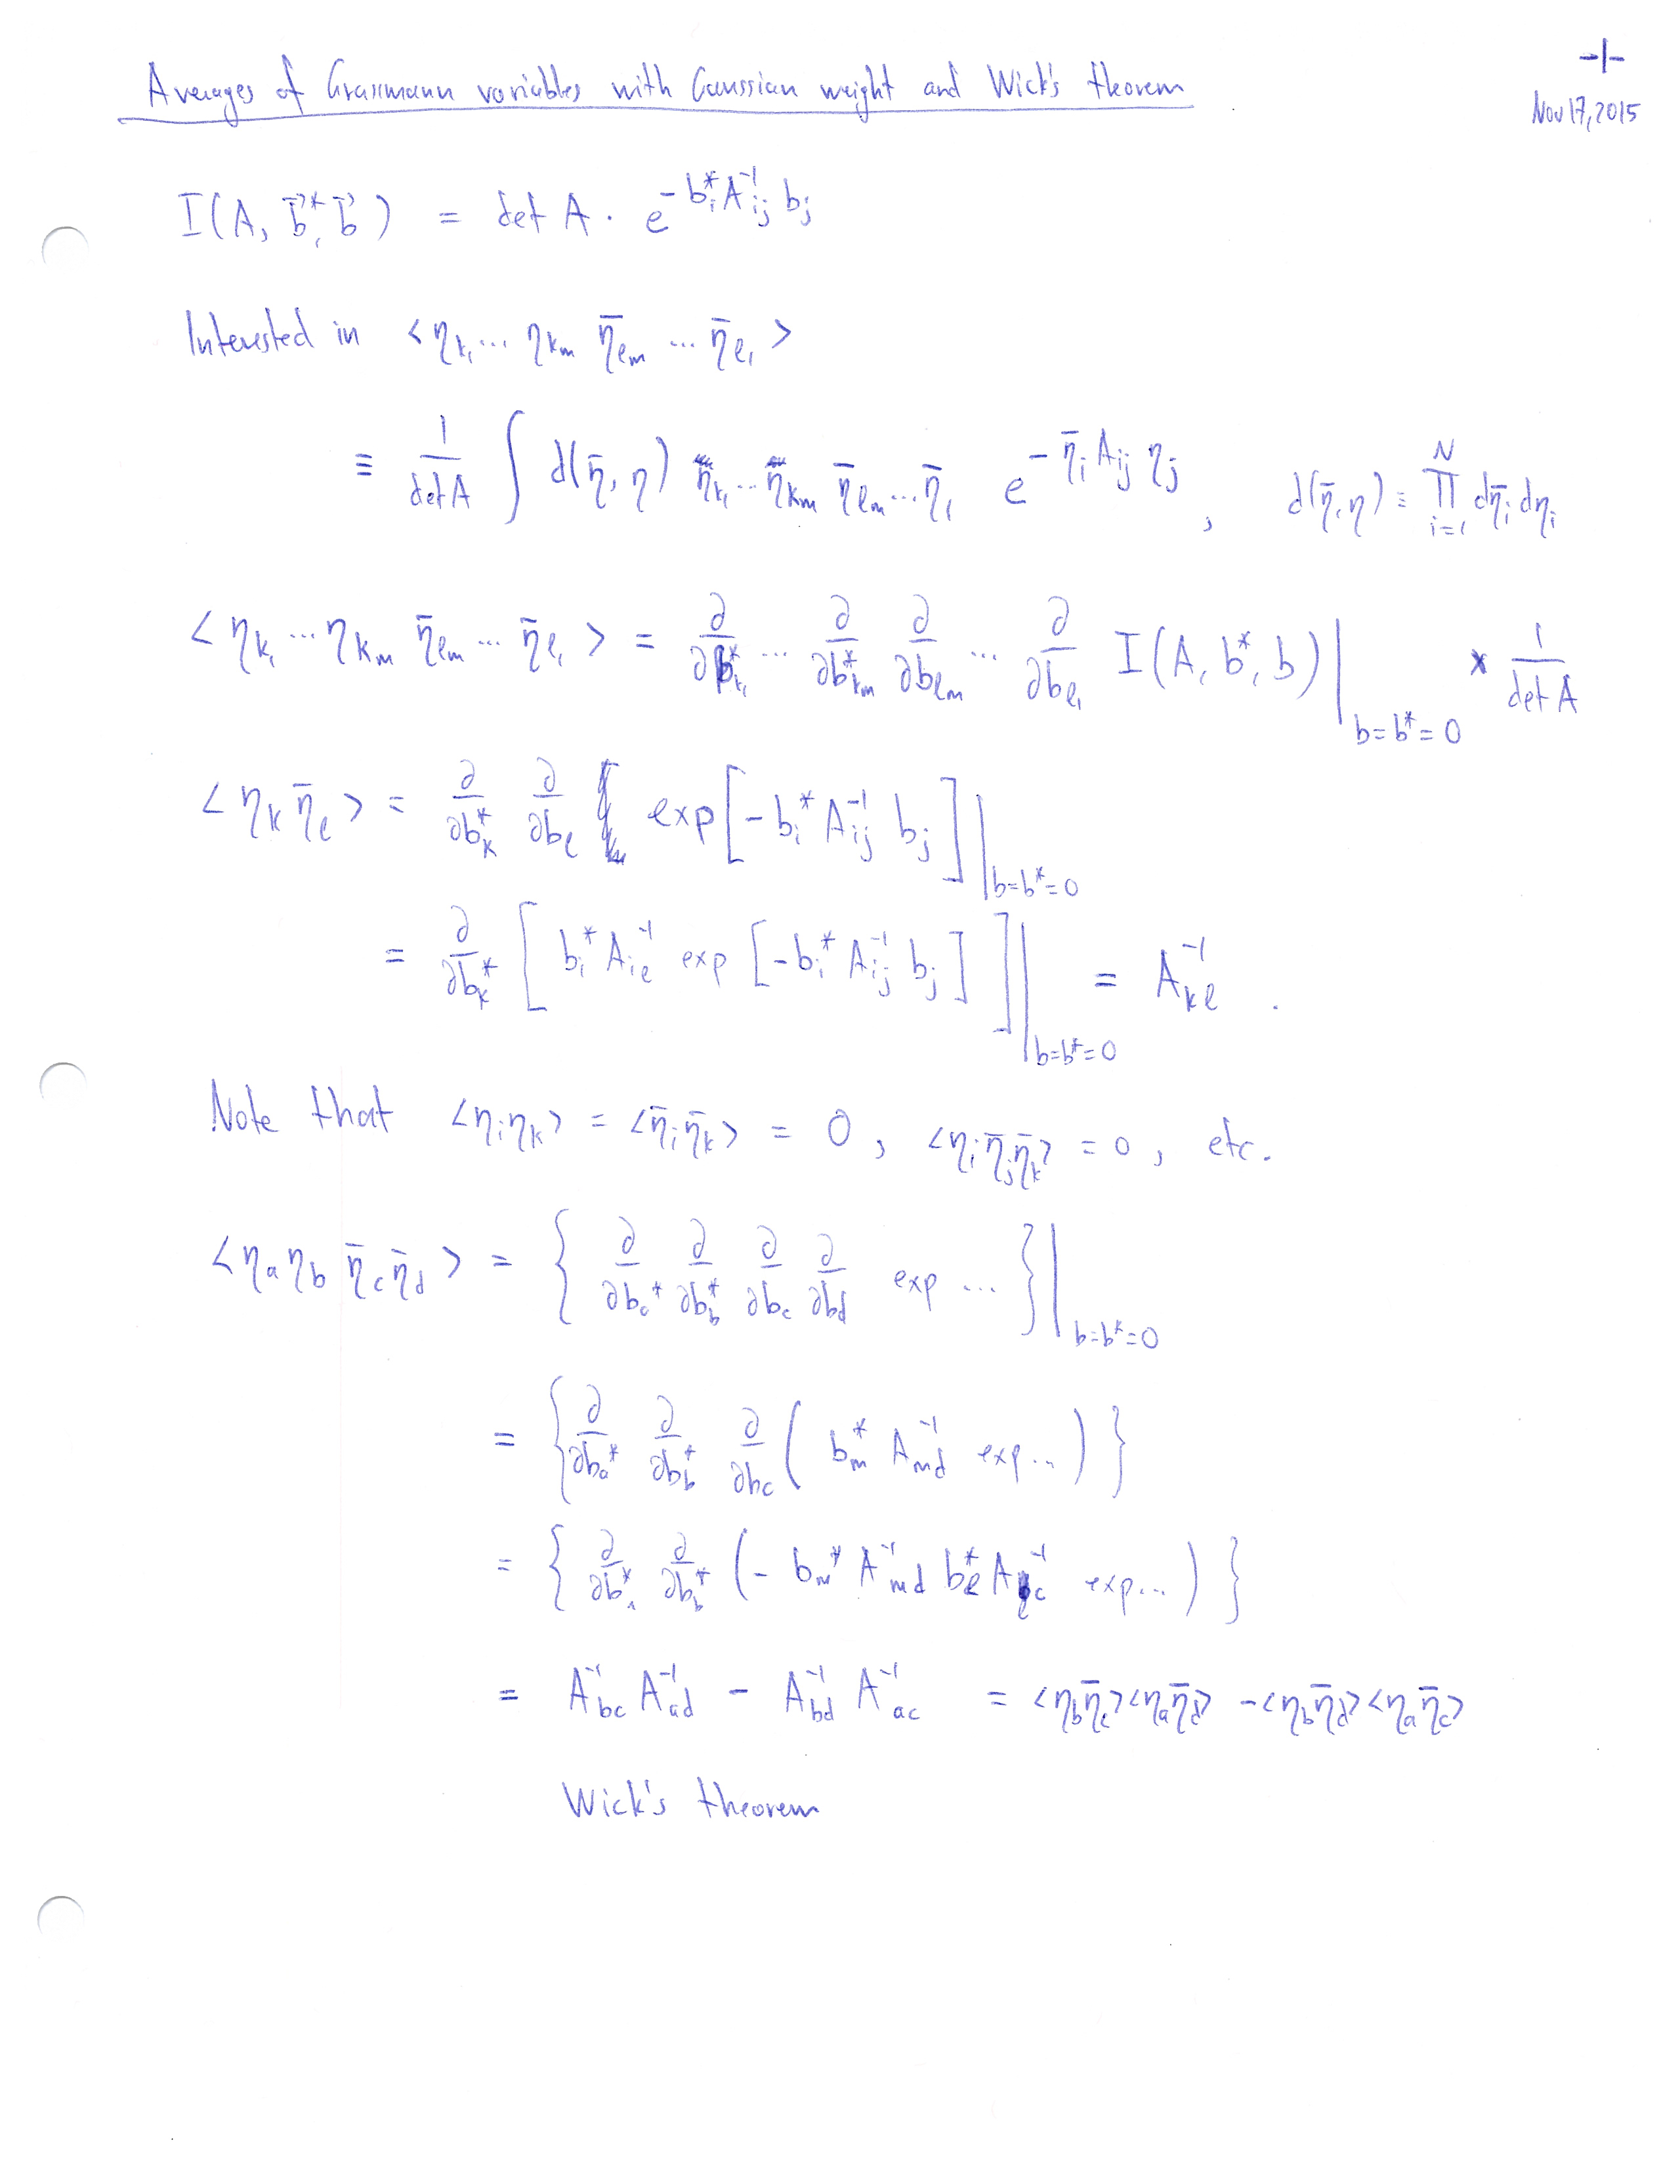 -1-
Averages of Grassmann variables with Gaussian weight and Wick's theorem
Nov 17, 2015
I(A, b⃗*, b⃗) = det A · e^{-b*_i A^{-1}_{ij} b_j}
Interested in <η_{k_1} ... η_{k_m} η̄_{l_m} ... η̄_{l_1}>
≡ 1/det A ∫ d(η̄, η) η_{k_1} ... η_{k_m} η̄_{l_m} ... η̄_{1} e^{-η̄_i A_{ij} η_j}, d(η̄, η) ≡ ∏_{i=1}^{N} dη̄_i dη_i
<η_{k_1} ... η_{k_m} η̄_{l_m} ... η̄_{l_1}> = ∂/∂b*_{k_1} ... ∂/∂b*_{k_m} ∂/∂b_{l_m} ... ∂/∂b_{l_1} I(A, b*, b)|_{b=b*=0} × 1/det A
<η_k η̄_l> = ∂/∂b*_k ∂/∂b_l exp[-b*_i A^{-1}_{ij} b_j]|_{b=b*=0}
= ∂/∂b*_k [b*_i A^{-1}_{il} exp[-b*_i A^{-1}_{ij} b_j]]|_{b=b*=0} = A^{-1}_{kl}.
Note that <η_i η_k> = <η̄_i η̄_k> = 0, <η_i η̄_j η̄_k> = 0, etc.
<η_a η_b η̄_c η̄_d> = {∂/∂b_a* ∂/∂b_b* ∂/∂b_c ∂/∂b_d exp ...}|_{b=b*=0}
= {∂/∂b_a* ∂/∂b_b* ∂/∂b_c (b*_m A^{-1}_{md} exp...)}
= {∂/∂b*_a ∂/∂b_b* (-b_m* A^{-1}_{md} b*_l A^{-1}_{lc} exp...)}
= A^{-1}_{bc} A^{-1}_{ad} - A^{-1}_{bd} A^{-1}_{ac} = <η_b η̄_c><η_a η̄_d> - <η_b η̄_d><η_a η̄_c>
Wick's theorem